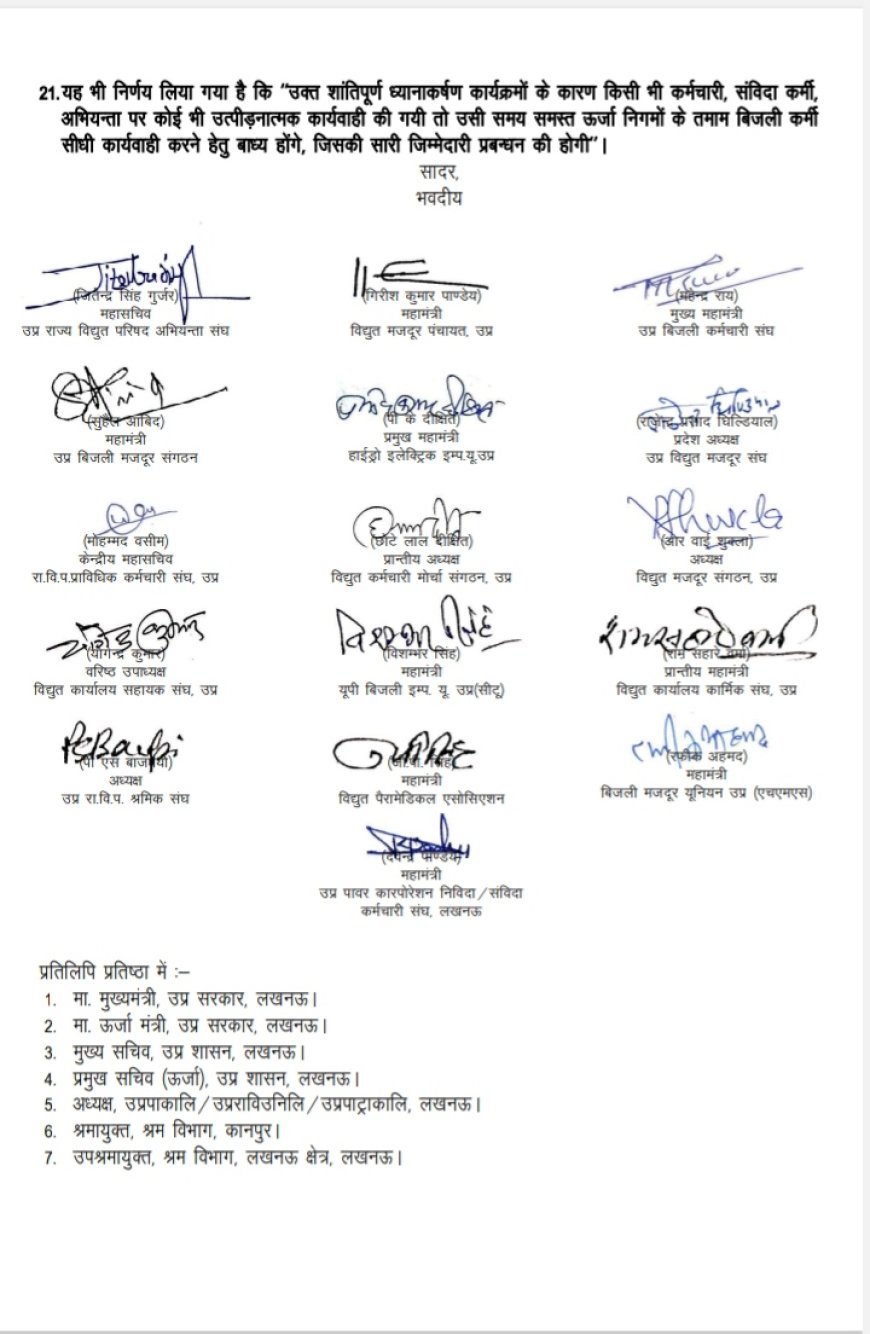 21. यह भी निर्णय लिया गया है कि "उक्त शांतिपूर्ण ध्यानाकर्षण कार्यक्रमों के कारण किसी भी कर्मचारी, संविदा कर्मी,
अभियन्ता पर कोई भी उत्पीड़नात्मक कार्यवाही की गयी तो उसी समय समस्त ऊर्जा निगमों के तमाम बिजली कर्मी
सीधी कार्यवाही करने हेतु बाध्य होंगे, जिसकी सारी जिम्मेदारी प्रबन्धन की होगी"।
सादर,
भवदीय
(जितेन्द्र सिंह गुर्जर)
महासचिव
उप्र राज्य विद्युत परिषद अभियन्ता संघ
(गिरीश कुमार पाण्डेय)
महामंत्री
विद्युत मजदूर पंचायत, उप्र
(महेन्द्र राय)
मुख्य महामंत्री
उप्र बिजली कर्मचारी संघ
(सुहैल आबिद)
महामंत्री
उप्र बिजली मजदूर संगठन
(पी के दीक्षित)
प्रमुख महामंत्री
हाईड्रो इलेक्ट्रिक इम्प.यू.उप्र
(राजेन्द्र प्रसाद घिल्डियाल)
प्रदेश अध्यक्ष
उप्र विद्युत मजदूर संघ
(मोहम्मद वसीम)
केन्द्रीय महासचिव
रा.वि.प.प्राविधिक कर्मचारी संघ, उप्र
(छोटे लाल दीक्षित)
प्रान्तीय अध्यक्ष
विद्युत कर्मचारी मोर्चा संगठन, उप्र
(आर वाई शुक्ला)
अध्यक्ष
विद्युत मजदूर संगठन, उप्र
(योगेन्द्र कुमार)
वरिष्ठ उपाध्यक्ष
विद्युत कार्यालय सहायक संघ, उप्र
(विशम्भर सिंह)
महामंत्री
यूपी बिजली इम्प. यू. उप्र(सीटू)
(राम सहारे वर्मा)
प्रान्तीय महामंत्री
विद्युत कार्यालय कार्मिक संघ, उप्र
(पी एस बाजपेयी)
अध्यक्ष
उप्र रा.वि.प. श्रमिक संघ
सिंह)
महामंत्री
विद्युत पैरामेडिकल एसोसिएशन
(रफीक अहमद)
महामंत्री
बिजली मजदूर यूनियन उप्र (एचएमएस)
(देवेन्द्र पाण्डेय)
महामंत्री
उप्र पावर कारपोरेशन निविदा/संविदा
कर्मचारी संघ, लखनऊ
प्रतिलिपि प्रतिष्ठा में :–
1. मा. मुख्यमंत्री, उप्र सरकार, लखनऊ।
2. मा. ऊर्जा मंत्री, उप्र सरकार, लखनऊ।
3. मुख्य सचिव, उप्र शासन, लखनऊ।
4. प्रमुख सचिव (ऊर्जा), उप्र शासन, लखनऊ।
5. अध्यक्ष, उप्रपाकालि/उप्रराविउनिलि/उप्रपाट्राकालि, लखनऊ।
6. श्रमायुक्त, श्रम विभाग, कानपुर।
7. उपश्रमायुक्त, श्रम विभाग, लखनऊ क्षेत्र, लखनऊ।